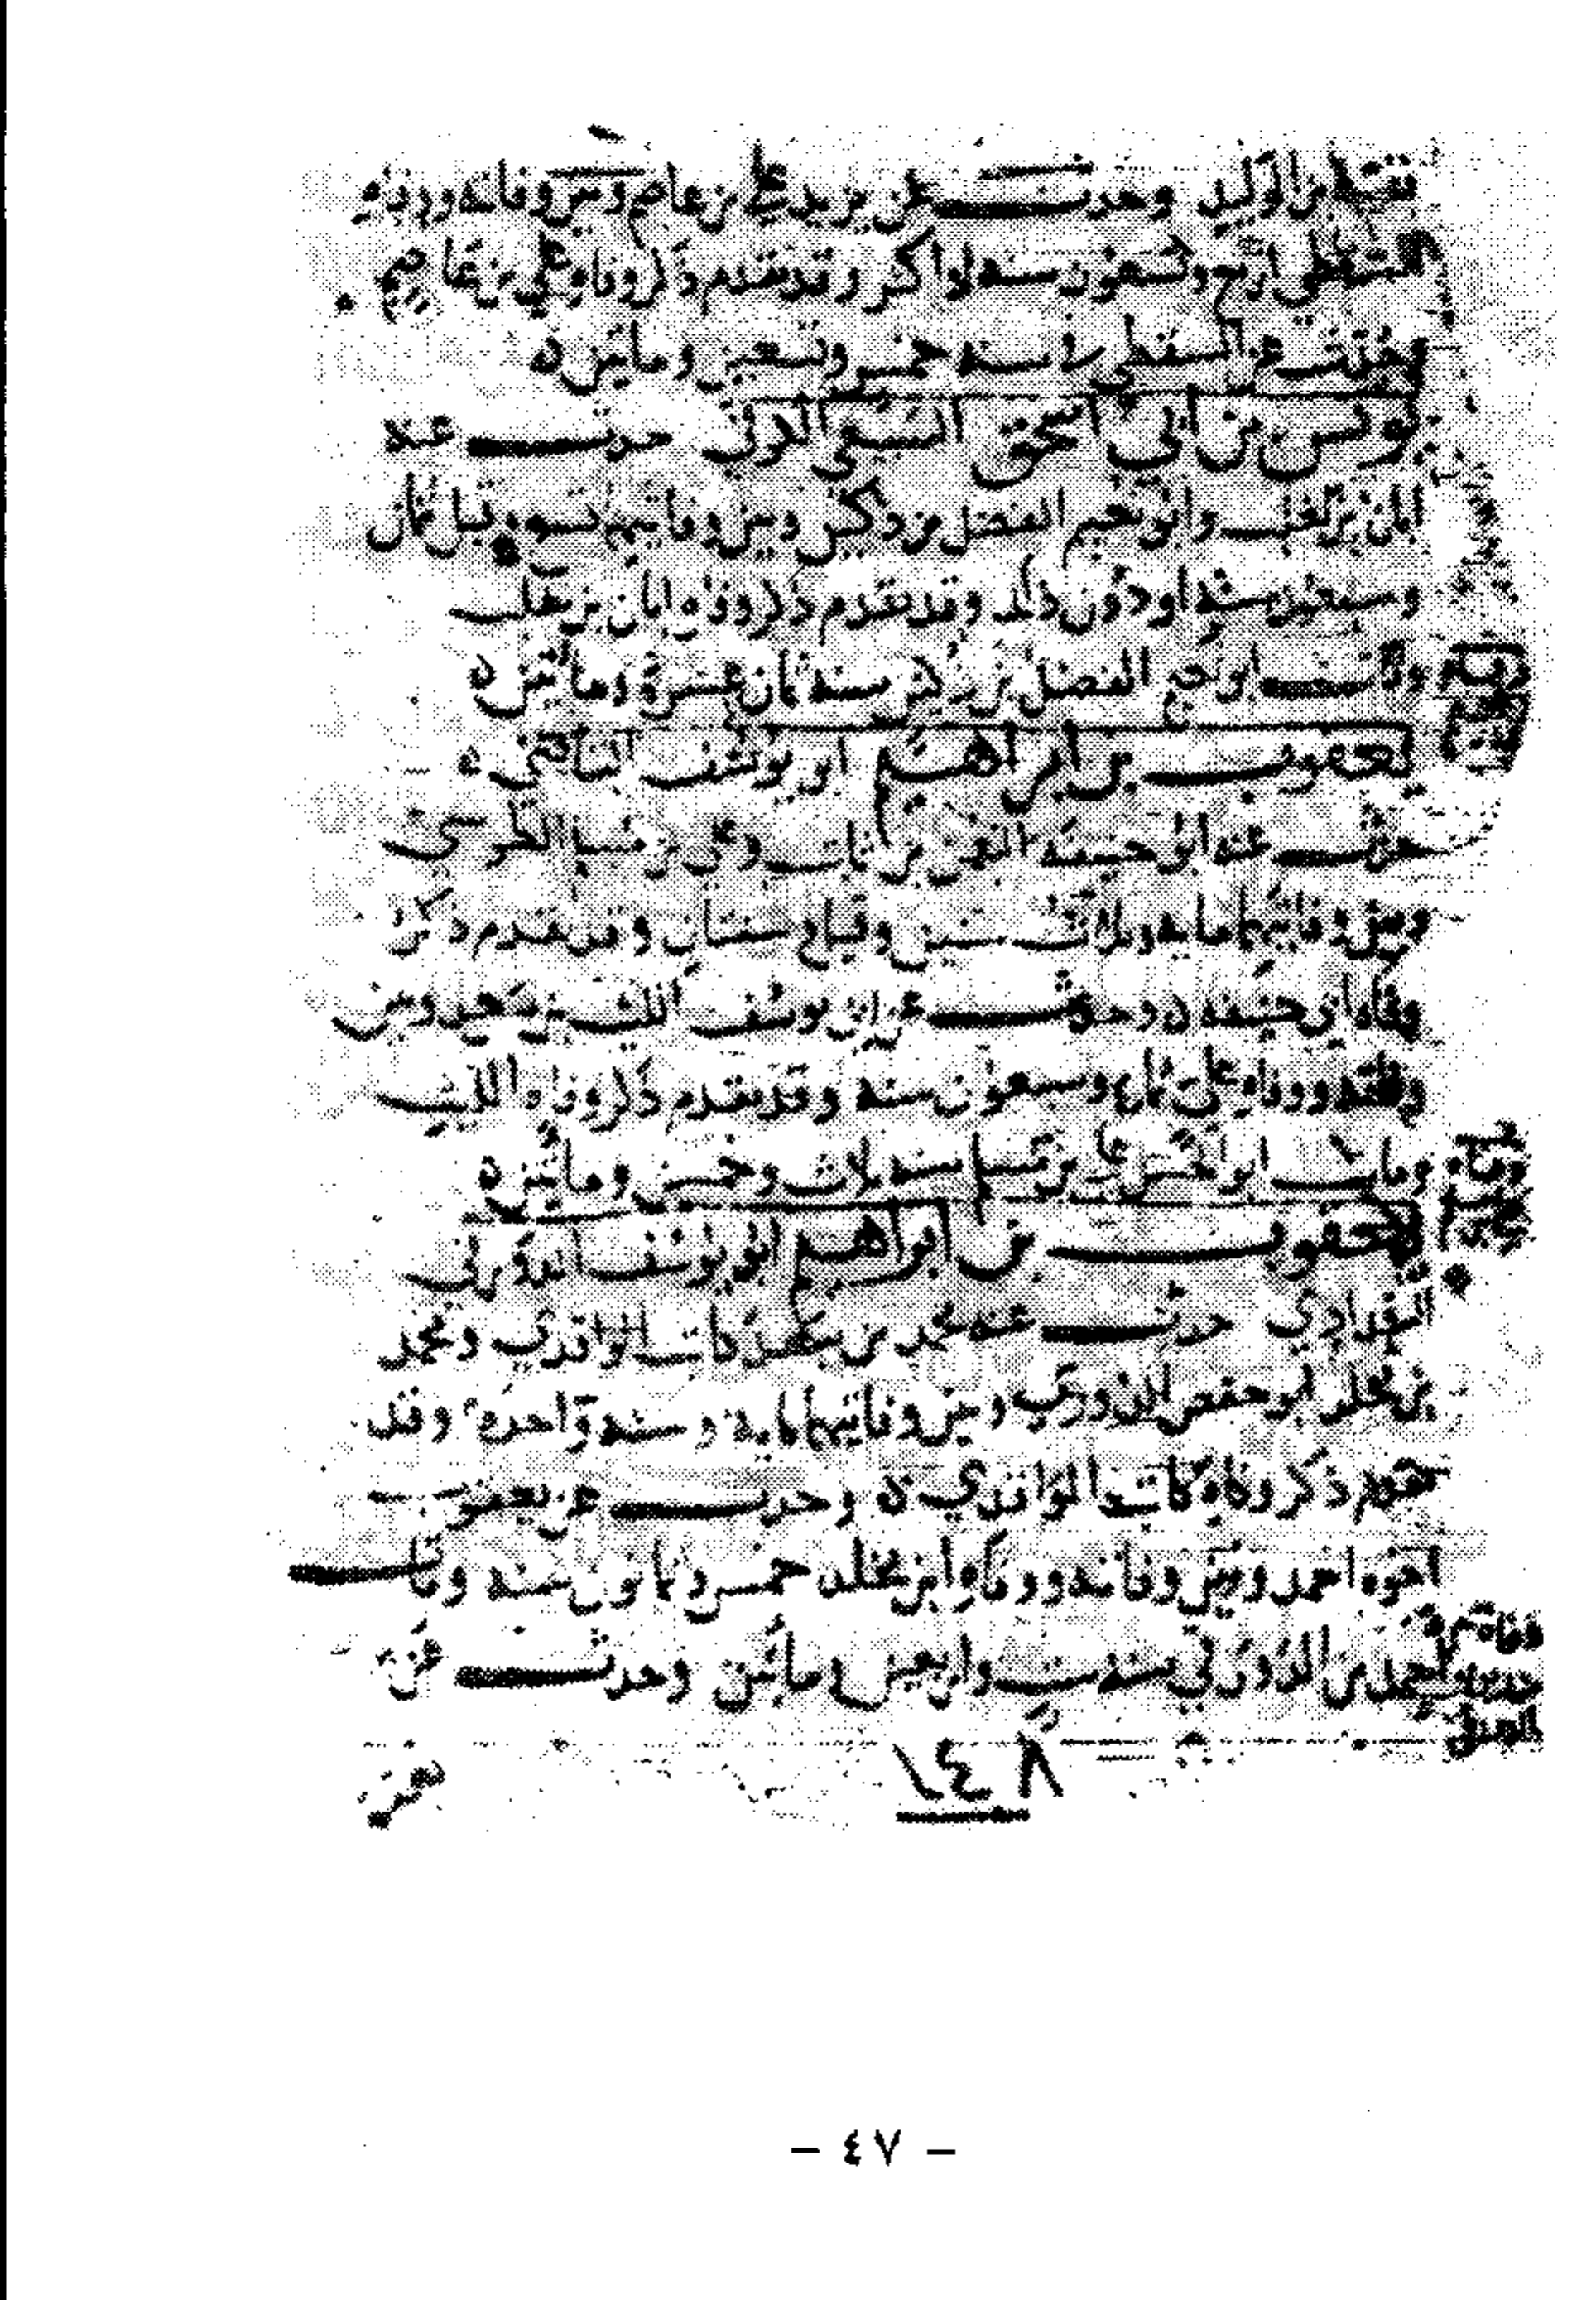 بقية بن الوليد وحدث عن يزيد علي بن عاصم وبين وفاته ووفاة
السقطي اربع وتسعون سنه او اكثر وقد تقدم ذكر وفاة علي بن عاصم
وحدث عن السقطي سنه خمس وتسعين ومائتين
يونس بن ابي اسحق السبيعي الكوفي حدث عنه
ابان بن تغلب وابو نعيم الفضل بن دكين وبين وفاتيهما تسع وقيل ثمان
وسبعون سنة او دون ذلك وقد تقدم ذكر وفاه ابان بن تغلب
ومات ابو نعيم الفضل بن دكين سنه ثمان عشرة ومائتين
يعقوب بن ابراهيم ابو يوسف القاضي
حدث عنه ابو حنيفه النعمن بن ثابت وعلي بن مسلم الطوسي
وبين وفاتيهما مايه وثلاث سنين وقيل سنتان وقد تقدم ذكر
وفاه ابي حنيفه وحدث عن ابي يوسف الليث بن سعد وبين
وفاته ووفاه علي ثمان وسبعون سنه وقد تقدم ذكر وفاه الليث
ومات ابو الحسن علي بن مسلم سنه ثلاث وخمسين ومائتين
يعقوب بن ابراهيم ابو يوسف الدورقي
البغدادي حدث عنه محمد بن سعد كاتب الواقدي ومحمد
بن مخلد ابو حفص الدوري وبين وفاتيهما مايه وسنه واحده وقد
تقدم ذكر وفاه كاتب الواقدي وحدث عن يعقوب
اخوه احمد وبين وفاته ووفاه ابن مخلد خمس وثمانون سنه ومات
احمد بن الدورقي سنه ست واربعين ومائتين وحدث عن
١٤٨
- ٤٧ -